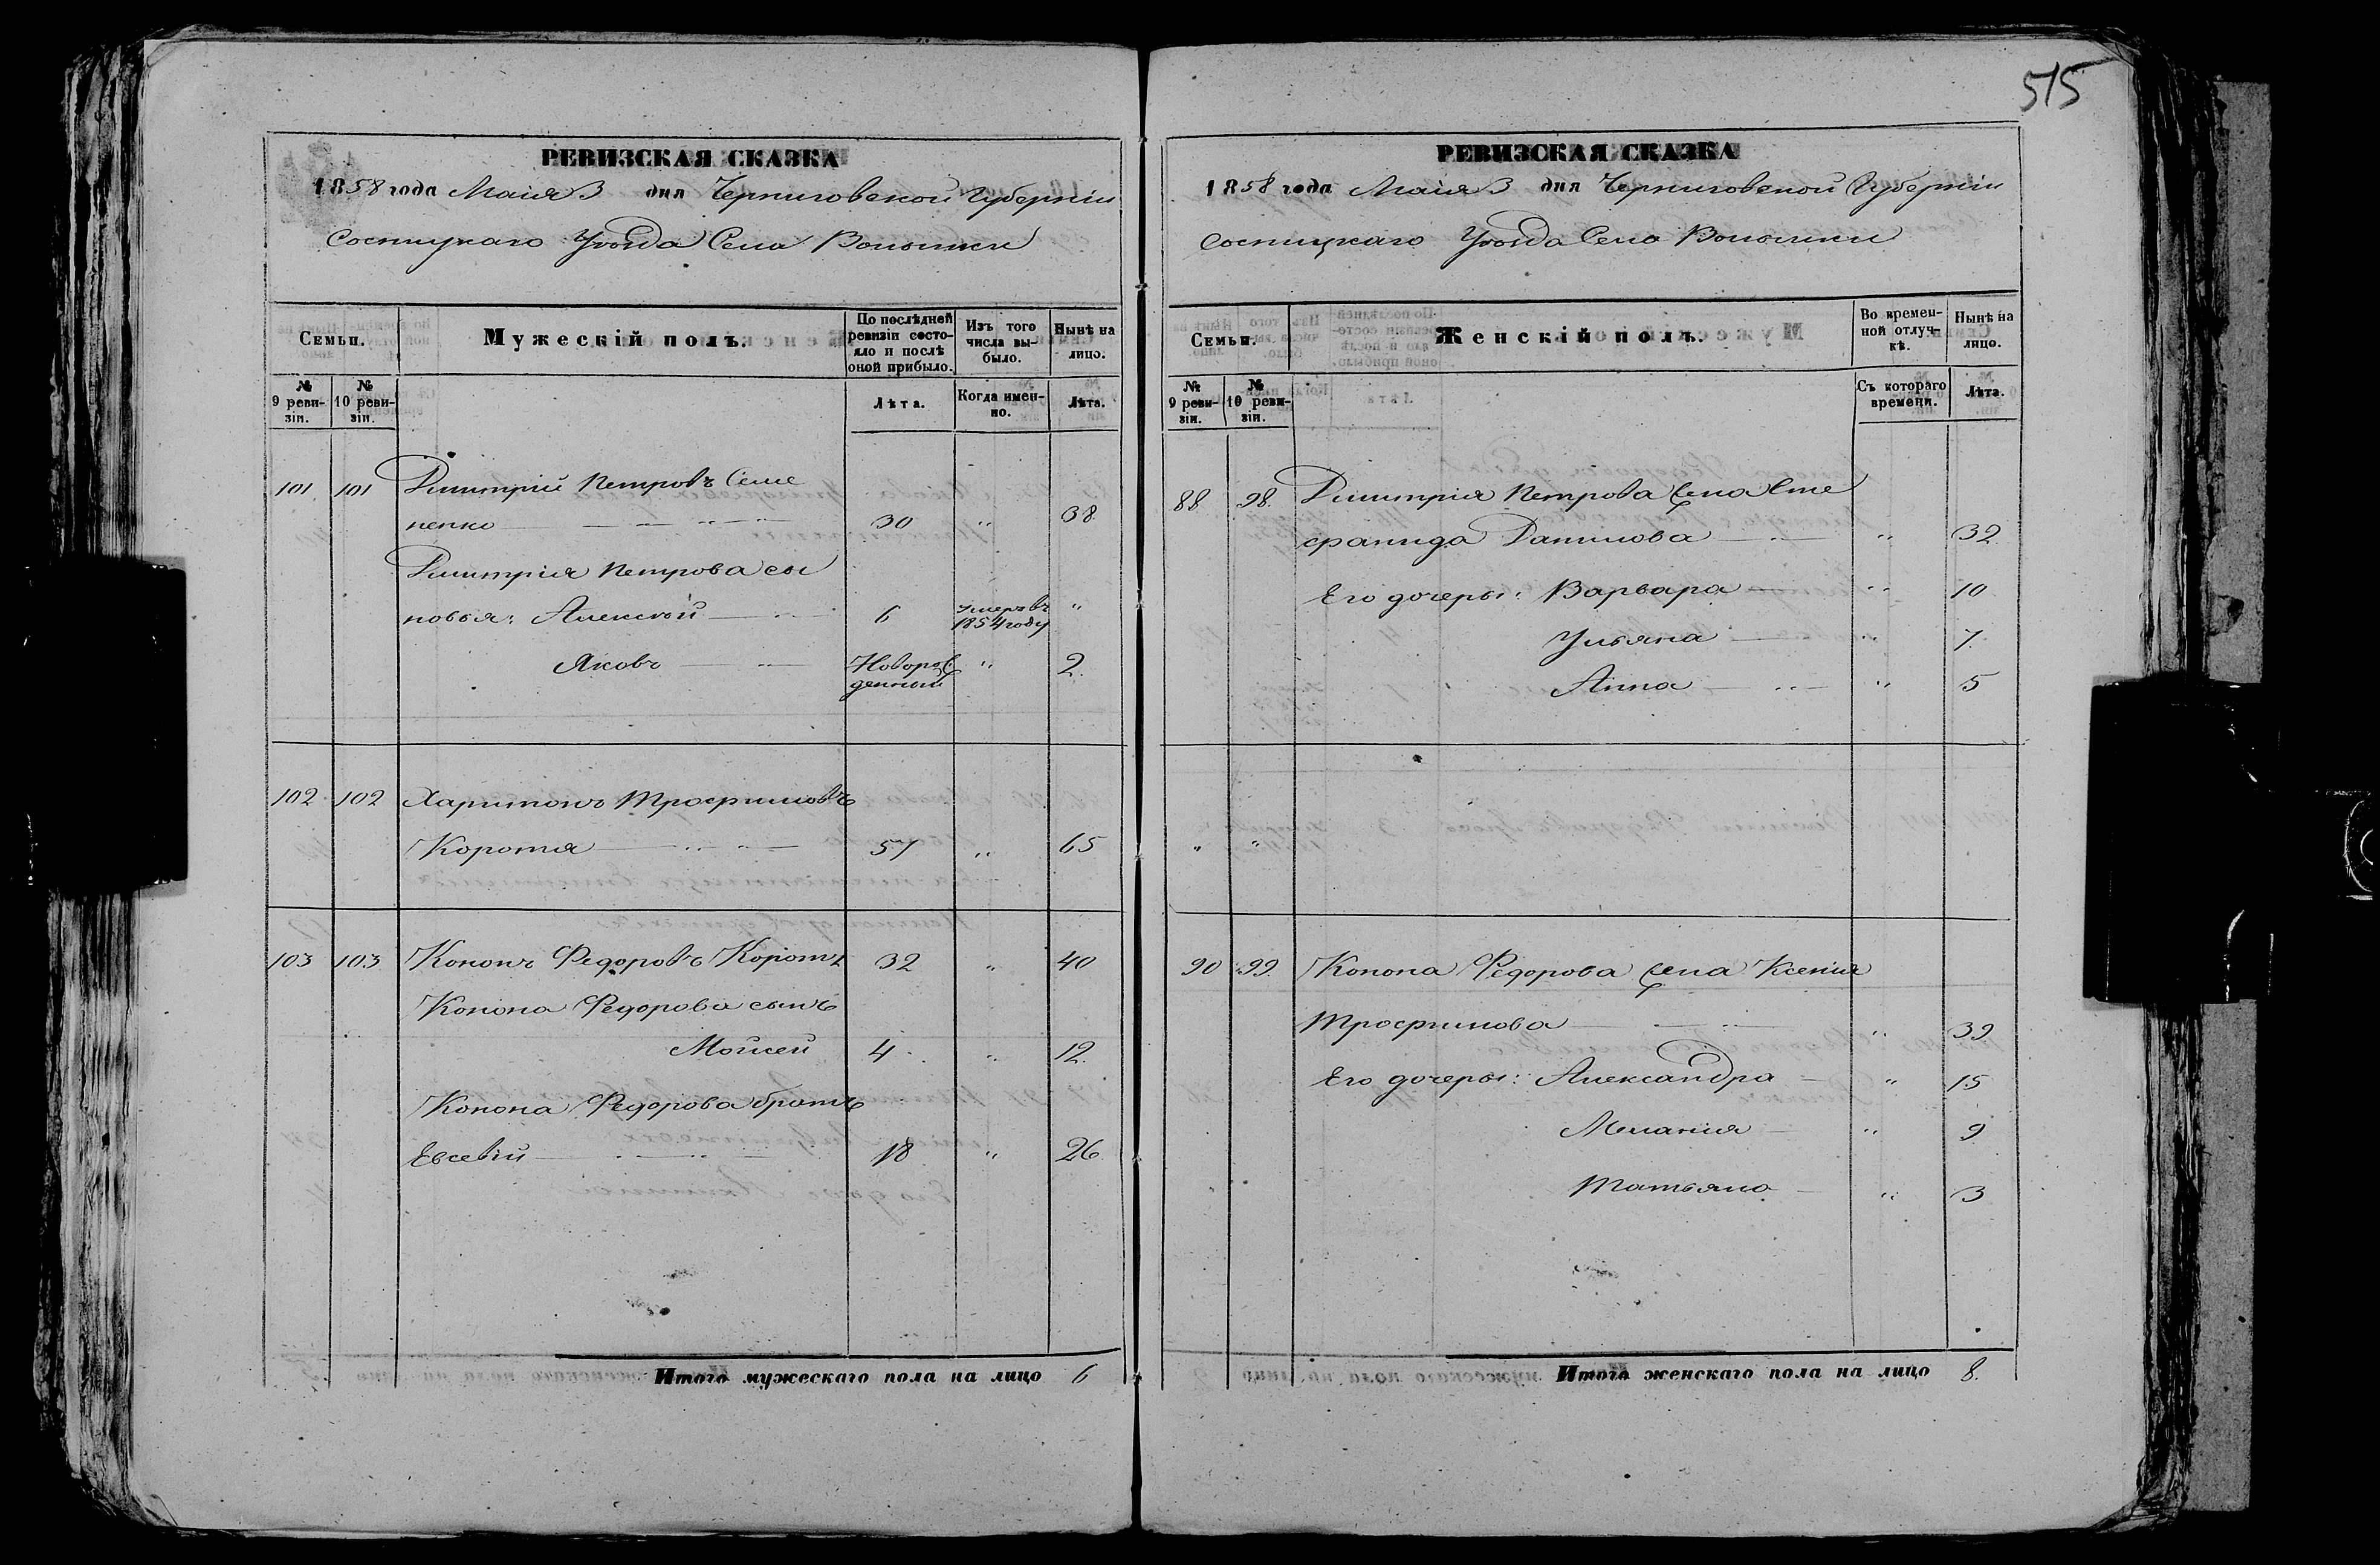 515
РЕВИЗСКАЯ СКАЗКА
1858 года Маія 3 дня Черниговской Губерніи
Сосницкаго Уѣзда Села Волынки
Семьи.
Мужескій полъ.
По послѣдней ревизіи состояло и послѣ оной прибыло.
Изъ того числа выбыло.
Нынѣ на лицо.
№ 9 ревизіи.
№ 10 ревизіи.
Лѣта.
Когда именно.
Лѣта.
101 101 Димитрій Петровъ Семе
ненко 30 " 38
Димитрія Петрова сы
новья: Алексѣй 6 умеръ въ 1854 году "
Яковъ Новорож денный " 2.
102 102 Харитонъ Трофимовъ
Коротя 57 " 65
103 103 Кононъ Федоровъ Коротя 32 " 40
Конона Федорова сынъ
Мойсей 4 " 12.
Конона Федорова братъ
Евсевій 18 " 26
Итого мужескаго пола на лицо 6
РЕВИЗСКАЯ СКАЗКА
1858 года Маія 3 дня Черниговской Губерніи
Сосницкаго Уѣзда Села Волынки
Семьи.
Женскій полъ.
Во временной отлучкѣ.
Нынѣ на лицо.
№ 9 ревизіи.
№ 10 ревизіи.
Съ котораго времени.
Лѣта.
88 98. Димитрія Петрова жена Сте
фанида Данилова " 32
Его дочеры: Варвара " 10
Ульяна " 7.
Анна " 5
" "
90 99. Конона Федорова жена Ксенія
Трофимова " 39
Его дочеры: Александра " 15
Меланія " 9
Татьяна " 3
Итого женскаго пола на лицо 8.